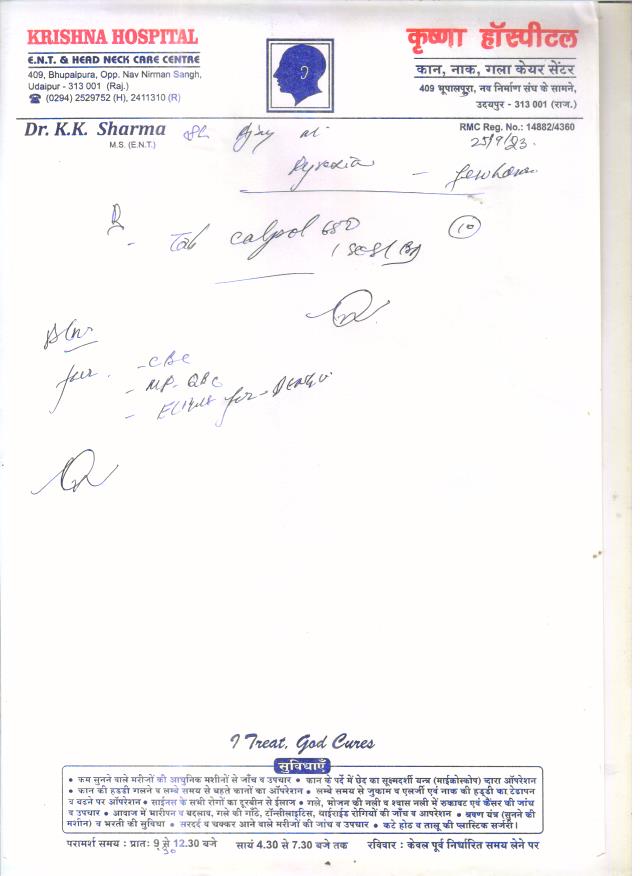 KRISHNA HOSPITAL
E.N.T. & HEAD NECK CARE CENTRE
409, Bhupalpura, Opp. Nav Nirman Sangh,
Udaipur - 313 001 (Raj.)
(0294) 2529752 (H), 2411310 (R)
कृष्णा हॉस्पीटल
कान, नाक, गला केयर सेंटर
409 भूपालपुरा, नव निर्माण संघ के सामने,
उदयपुर - 313 001 (राज.)
Dr. K.K. Sharma
M.S. (E.N.T.)
RMC Reg. No.: 14882/4360
25/9/23.
Pyrexia -
R
- Tab calpol 650 (10)
- CBC
- MP-QBC
- for - Dengu
I Treat, God Cures
सुविधाएँ
• कम सुनने वाले मरीजों की आधुनिक मशीनों से जाँच व उपचार • कान के पर्दे में छेद का सूक्ष्मदर्शी यन्त्र (माईक्रोस्कोप) द्वारा ऑपरेशन
• कान की हड्डी गलने व लम्बे समय से बहते कानों का ऑपरेशन • लम्बे समय से जुकाम व एलर्जी एवं नाक की हड्डी का टेडापन
व बढने पर ऑपरेशन • साईनस के सभी रोगों का दूरबीन से ईलाज • गले, भोजन की नली व श्वास नली में रुकावट एवं कैंसर की जांच
व उपचार • आवाज में भारीपन व बदलाव, गले की गाँठे, टॉन्सीलाइटिस, थाईराईड रोगियों की जाँच व आपरेशन • श्रवण यंत्र (सुनने की
मशीन) व भरती की सुविधा • सरदर्द व चक्कर आने वाले मरीजों की जांच व उपचार • कटे होठ व तालू की प्लास्टिक सर्जरी।
परामर्श समय : प्रातः 9 से 12.30 बजे सायं 4.30 से 7.30 बजे तक रविवार : केवल पूर्व निर्धारित समय लेने पर
30